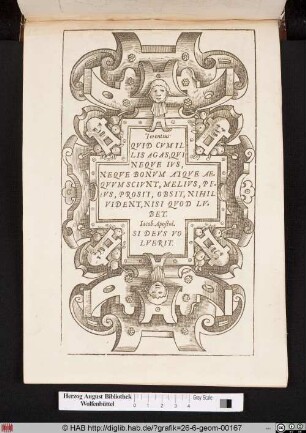 Terentius
QVID CVM IL
LIS AGAS, QVI
NEQVE IVS,
NEQVE BONVM ATQVE AE,
QVVM SCIVNT, MELIVS, PE,
IVS, PROSIT, OBSIT, NIHIL
VIDENT, NISI QVOD LV,
BET.
Iacob. Apostol.
SI DEVS VO
LVERIT.
Herzog August Bibliothek
Wolfenbüttel
Gray Scale
0 1 2 3 4
© HAB http://diglib.hab.de/?grafik=26-6-geom-00167